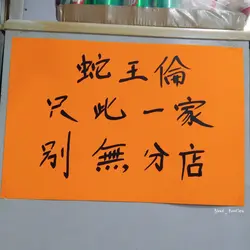 蛇王倫
只此一家
別無分店